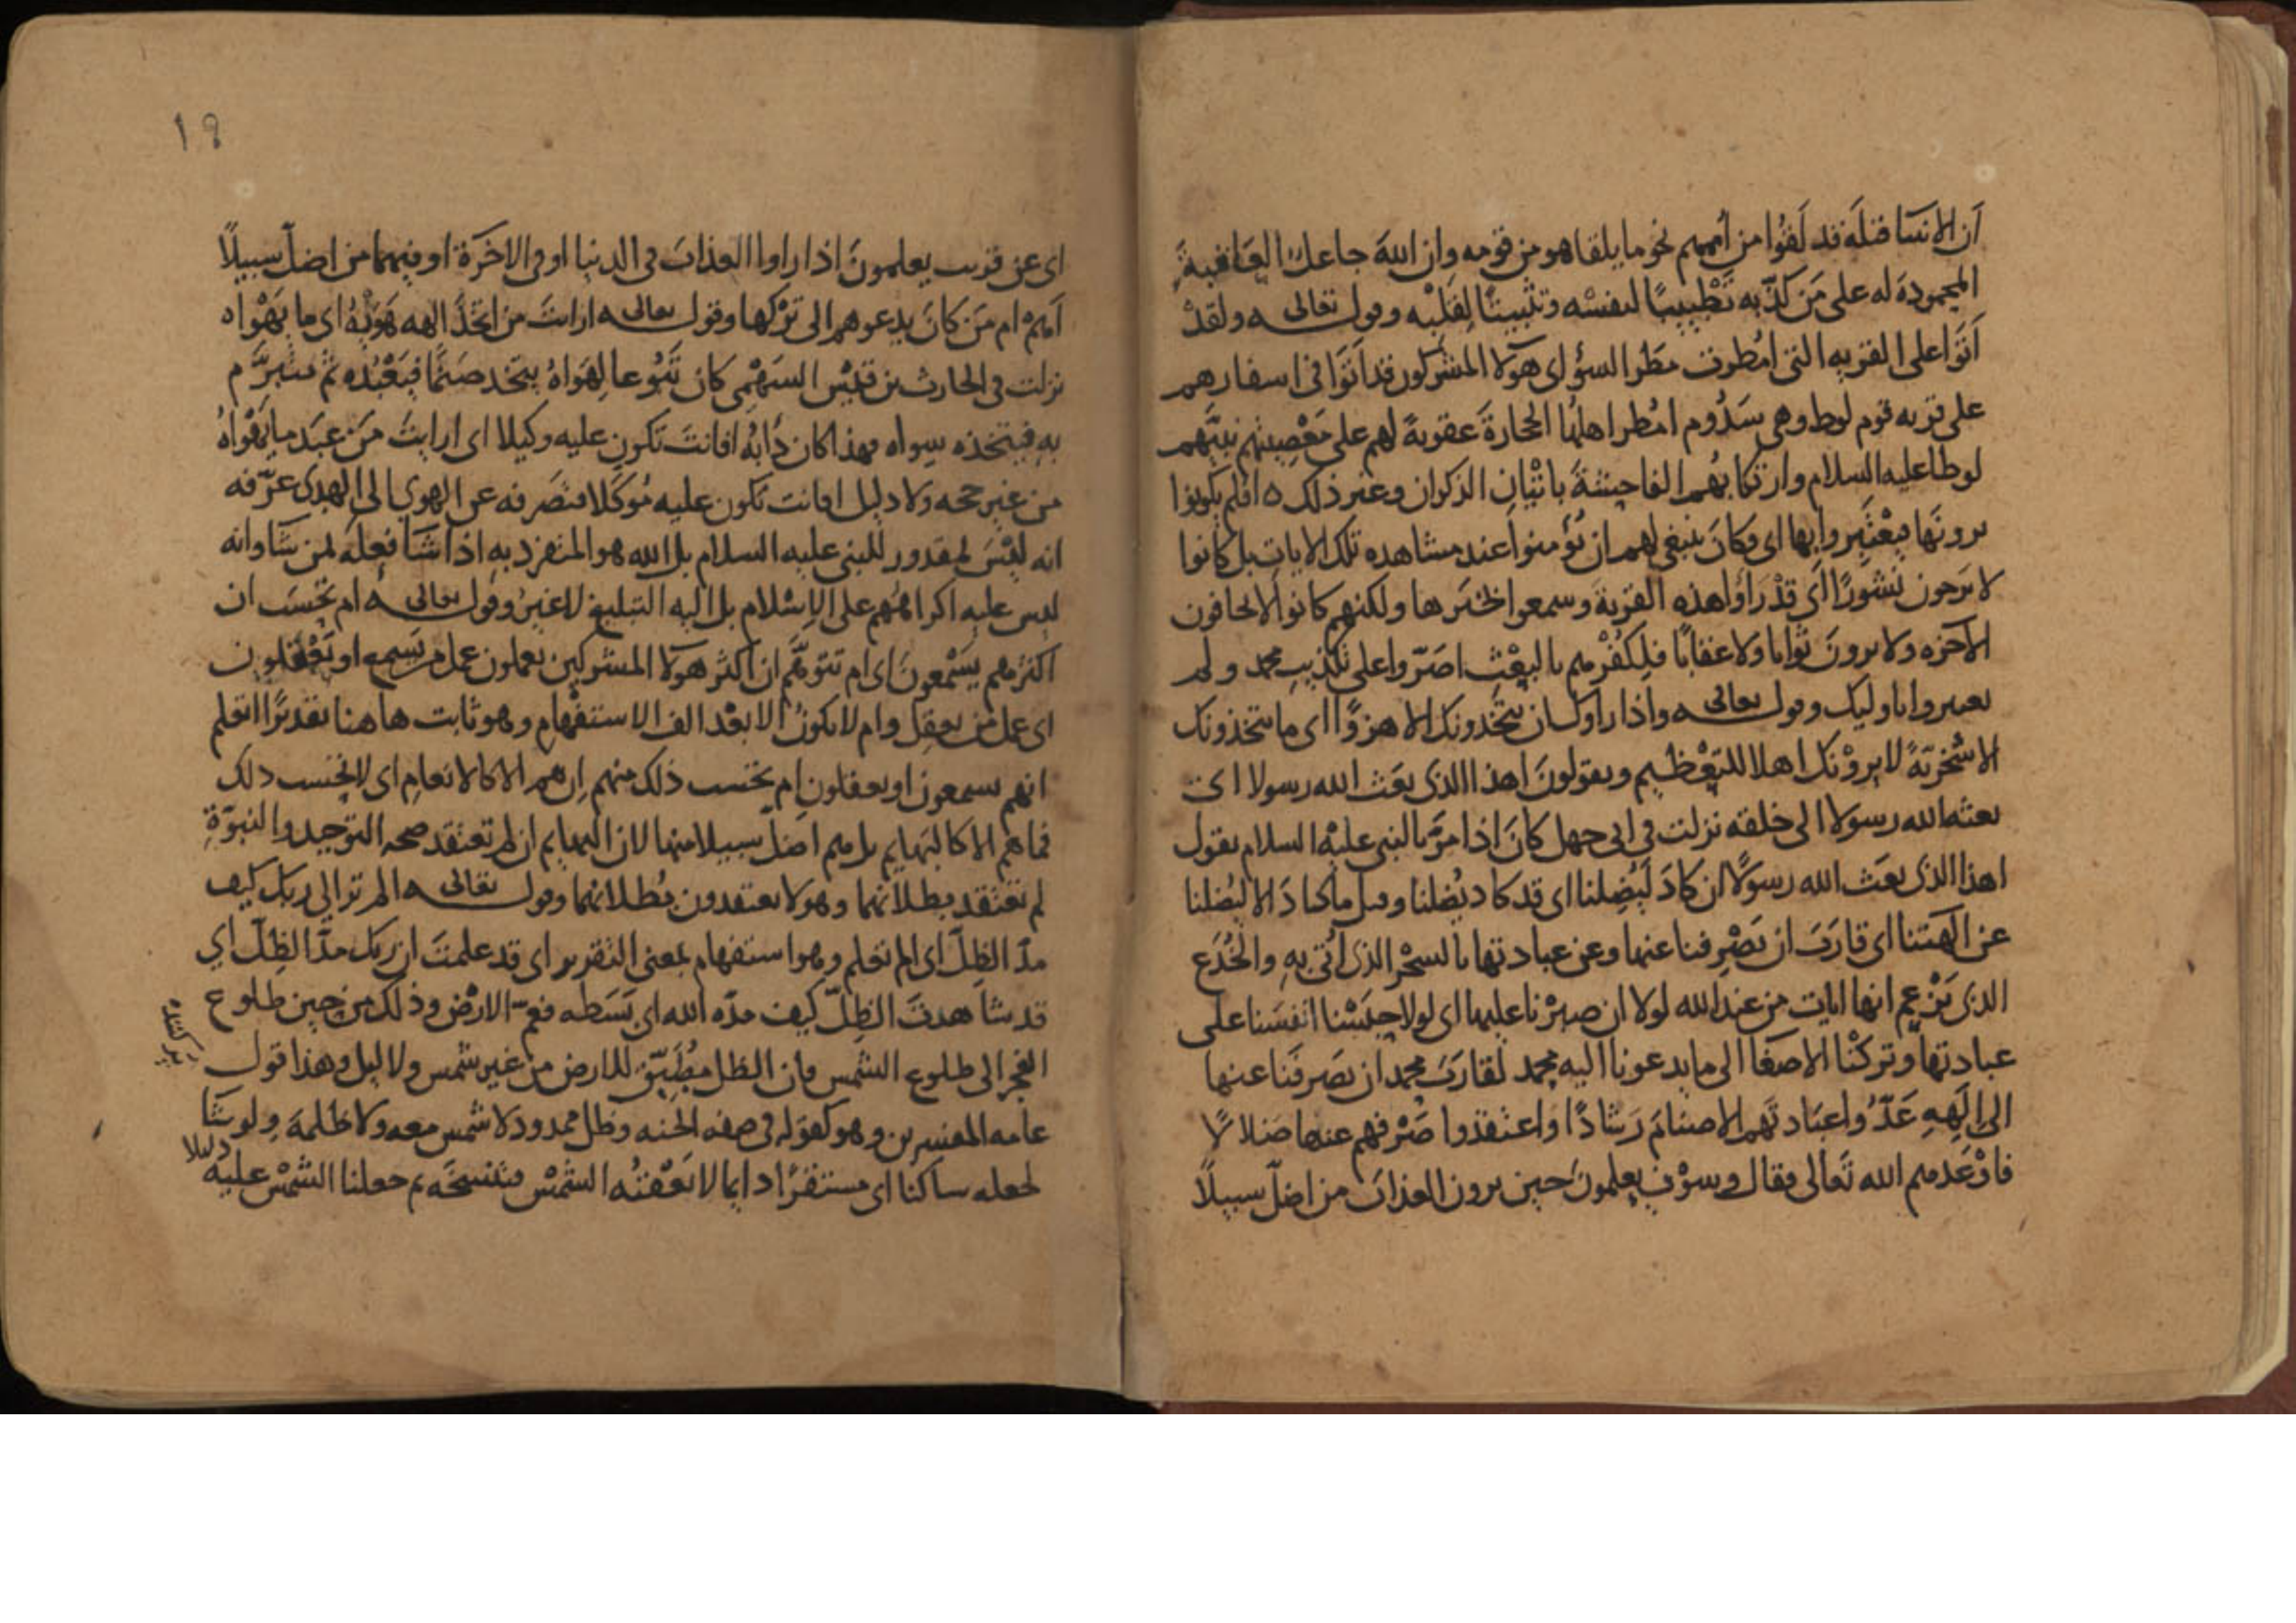 أن الانبيا قبله قد لَقُوا من أممهم نحو ما يلقاه هو من قومه وان الله جاعل العَاقبةَ
المحمودة له على مَن كذّب به تَطْييبًا لنفسْه وتثبيتًا لقلبْه وقوله تعالى ولقدْ
أتَوَا على القريه التى امُطرت مَطر السؤ اى هوَلا المشركون قد أتَوَا فى اسفارهم
على قريه قوم لوط وهى سَدُوم امُطر اهلهُا الحجارةَ عقوبةً لهم على مَعْصِيتهم نبيَّهم
لوطا عليه السلام وارتكابُهم الفاحِشةَ باتْيانِ الذكران وغير ذلك ه افلم يكونوا
يرونَها فيعْتَبِروا بها اى فكانَ ينبغى لهم ان يُؤمنوا عند مشاهده تلك الايات بل كانوا
لا يَرجون نشُورًا اى قدْ رَأوا هذه القريةَ وسمعوا اخبَرها ولكنهم كانوا لا يخافون
الآخره ولا يرونَ ثوابا ولا عقابًا فلِكفُرْهم بالبعْث اصَرّوا على تكذيب محمد ولم
يعتبروا باوليك وقوله تعالى واذا راوك ان يتّخذونك الا هزوًا اى ما يتخذونك
الا سُخْريّةً لا يروْنك اهلا للتعْظيم ويقولونَ اهذا الذى بعَث الله رسولا اى
بعثه الله رسولا الى خلقه نزلت فى ابى جهل كانَ اذا مَرَّ بالنبى عليْه السلام يقول
اهذا الذى بعَث الله رسولًا ان كادَ لَيُضِلنا اى قد كاد يُضلنا وقيل ما كادَ الا ليُضلنا
عن الهَتنا اى قارَبَ ان يَصْرِفنا عنها وعن عبادتها بالسحْر الذى أتى بهِ والخُدَع
الذى يَزْعم انها ايات من عند الله لولا ان صبرْنا عليها اى لولا حبَسْنا انفسَنا على
عبادتها وتركْنا الاصغَا الى ما يدعونا اليه محمد لقاربَ محمد ان يصَرفنَا عنها
الى إلَهِهِ عَدُّوا عبَادتَهم الاصنامَ رَشادًا وَاعتقدوا صَرْفهم عنها ضلالًا
فاوْعَدهم الله تعَالى فقال وسوْف يعلمونَ حين يرون العذابَ من اضلّ سبيلًا
١٩
اى عن قريب يعلمونَ اذا راوا العذابَ فى الدنيا او فى الاخرَة او فيهما من اضلّ سبيلًا
أهمْ ام مَن كانَ يدعوهم الى تركها وقوله تعالى ارايتَ من اتخذَ الهه هَوَيهُ اى ما يَهْواه
نزلت فى الحارث بن قيْس السَهْمِى كان تَبُوعا لِهَواهُ يتخد صنَمًا فيَعْبُده ثم يتَبرَّم
بهِ فيتخذه سِواه فهذا كان دَأبُه افانتَ تكون عليه وكيلا اى ارايتَ مَن عَبدَ ما يَهْواهُ
من غير حجه ولا دليل افانت تكون عليه مُوَكَلا فتصَرفه عن الهوى الى الهدى عرّفه
انه ليْسَ بمقدور للنبى عليه السلام بل الله هو المتفرد به اذا شَا فعلَه لمن شَا وانه
ليس عليه اكراههُم على الاِسْلام بل اليه التبليغ لا غيرُ وقوله تعالى ام تَحْسَب ان
اكثرهم يسْمعونَ اى ام تتَوهَّم ان اكثر هَولا المشركين يعملون عمل من يَسمع او يَعْقلون
اى عمل من يعقِل وام لا يكونُ الا بعْد الف الاستفْهام وهو ثابت ها هنا تقديرًا اتعلم
انهم يسمعون او يعقلون ام تحْسب ذلك منهم اِن هم الا كالانعامِ اى لا تحْسب ذلك
فما هم الا كالبَهايم بل هم اضل سبيلا منها لان البهايم ان لم تعتقد صحه التوحيد والنبوّةِ
لم تعتقد بطلانهما وهولا يعتقدون بُطلانهما وقوله تعالى الم تر الى ربك كيف
مدّ الظِلّ اى الم تعلم وهو استفهام بمعنى التقرير اى قد علمتَ ان ربك مدّ الظِلّ اي
قد شاهدتَ الظِلّ كيف مدّه الله اى بَسَطه فعَمّ الارض وذلك من حين طلوع
الفجر الى طلوع الشمس فان الظل مُطَبّق للارض من غير شمس ولا ليل وهذا قول
عامه المفسرين وهو كقوله فى صفه الجنه وظل ممدود لا شمس معه ولا ظلمة ولو شَا
لجعله ساكنا اى مستقرًا دايما لا تَعْقبُه الشمْس فتنسخَه ثم جعلنا الشمْس عليه
دليلا